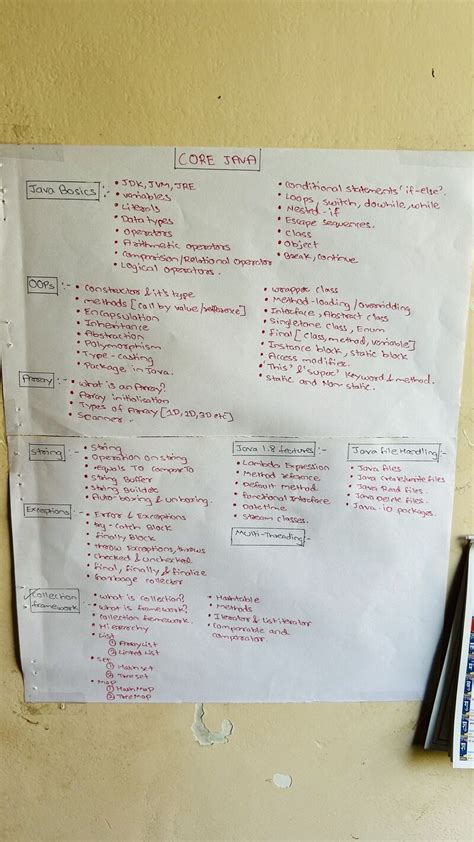 CORE JAVA
Java Basics :-
• JDK, JVM, JRE
• variables
• Literals
• Data types
• Operators
• Arithmetic operators
• Comparision/Relational operator
• Logical operators.
• Conditional statements 'if-else'.
• Loops, switch, dowhile, while
• Nested-if
• Escape sequences.
• Class
• Object
• Break, continue
OOPs :-
• constructor & it's type
• methods [call by value/reference]
• Encapsulation
• Inheritance
• Abstraction
• Polymorphism
• Type-casting
• Package in Java.
• wrapper class
• Method-loading/overridding
• Interface, Abstract class
• Singletone class, Enum
• Final [class, method, variable]
• Instance block, static block
• Access modifier.
• 'This' & 'super' keyword & method.
• static and Non static.
Array :-
• What is an Array?
• Array initialisation
• Types of Array [1D, 2D, 3D etc]
• Scanner.
String :-
• String
• Operation on string
• equals TO compareTo
• String Buffer
• String Builder
• Auto boxing & unboxing.
Java 1.8 features
• Lambda Expression
• Method reference
• Default method
• Functional Interface
• Datetime
• Stream classes.
Java File Handling
• Java files
• Java create/write files
• Java Read files
• Java Delete files
• Java.io packages.
Exceptions :-
• Error & Exceptions
• try-catch Block
• finally Block
• throw Exceptions, throws
• checked & unchecked
• final, finally & finalize
• Garbage collector
Multi-Threading
Collection framework :-
• what is collection?
• what is framework?
• collection framework.
• Hierarchy
• List
① ArrayList
② Linked List
• Set
① Hash set
② Tree set
• Map
① HashMap
② TreeMap
• Hashtable
• Methods
• Iterator & List iterator
• Comparable and
comparator.